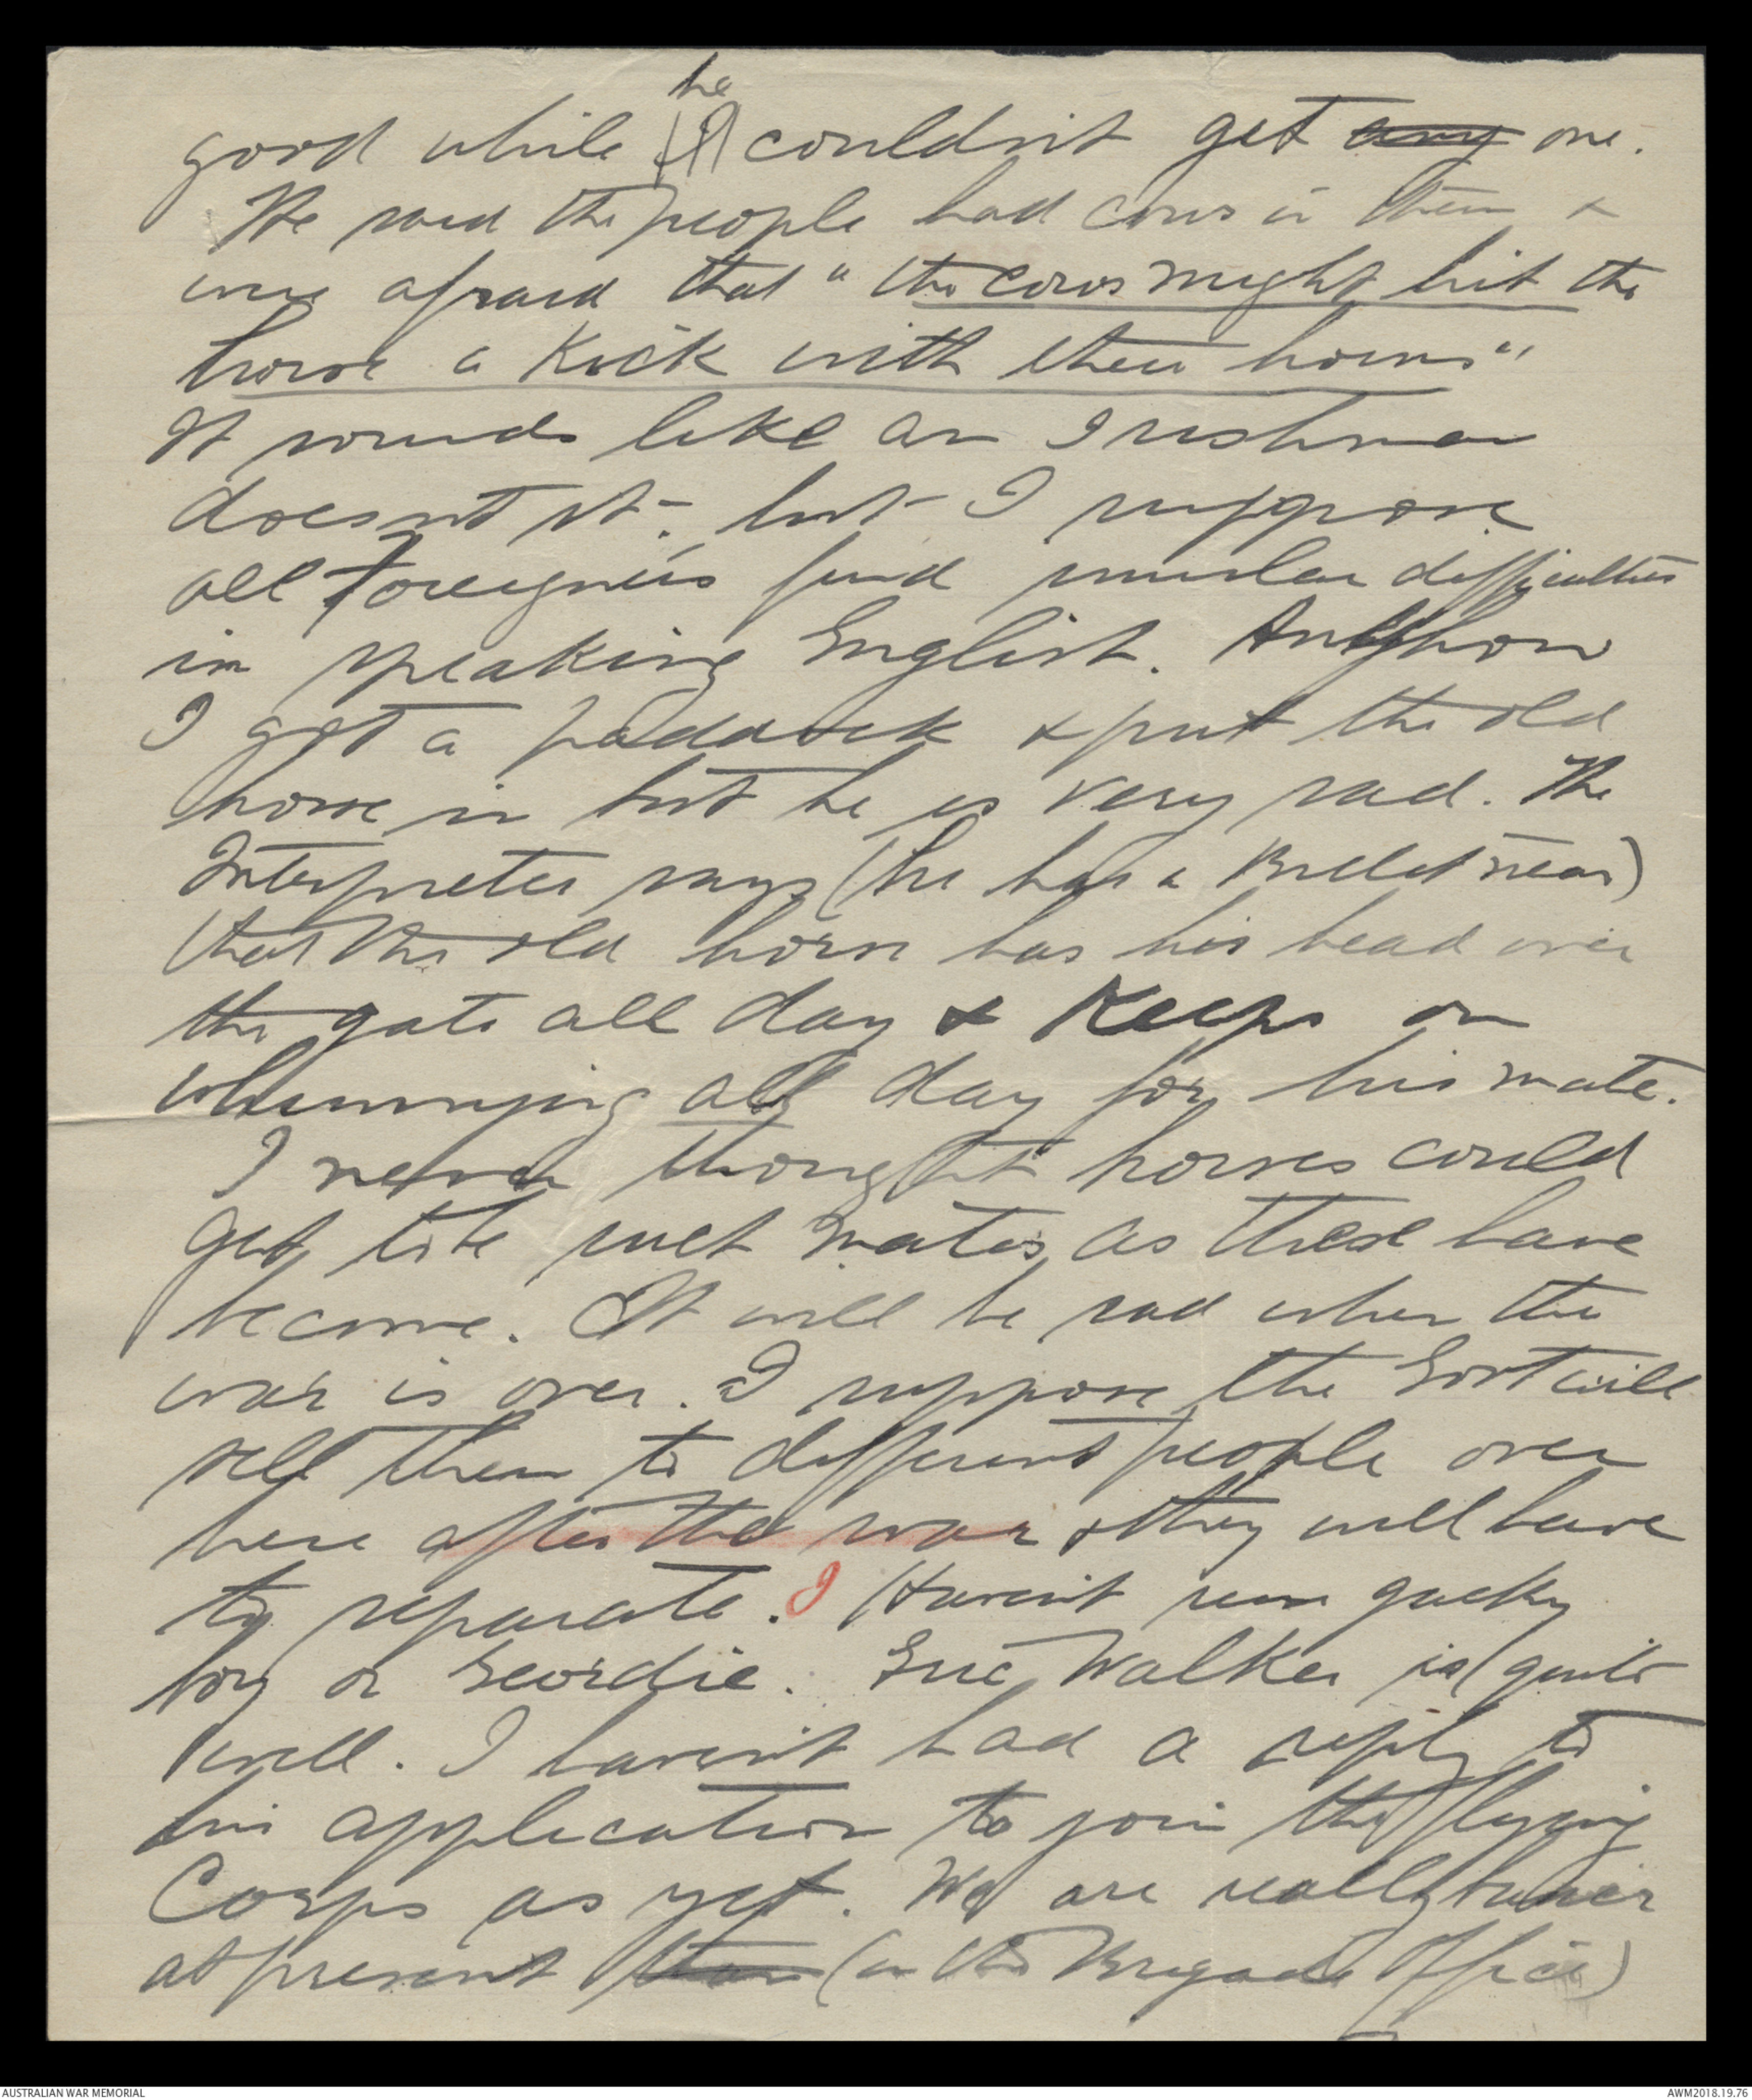 he
good while I couldn't get any one.
He said the people had cows in them &
were afraid that "the cows might hit the
horse a Kick with their horns"
It sounds like an Irishman
doesn't it – but I suppose
all foreigners find similar difficulties
in speaking English. Anyhow
I got a paddock & put the old
horse in but he is very sad. The
Interpreter says (he has a Billet near)
that the old horse has his head over
the gate all day & Keeps on
whinnying all day for his mate.
I never thought horses could
get to be such mates as these have
become. It will be sad when the
war is over. I suppose the Govt will
sell them to different people over
here after the war & they will have
to separate. I Haven't seen Jacky
Ioy or Geordie. Eric Walker is quite
well. I haven't had a reply to
his application to join the flying
Corps as yet. We are really busier
at present than (in the Brigade Office)
AUSTRALIAN WAR MEMORIAL
AWM2018.19.76